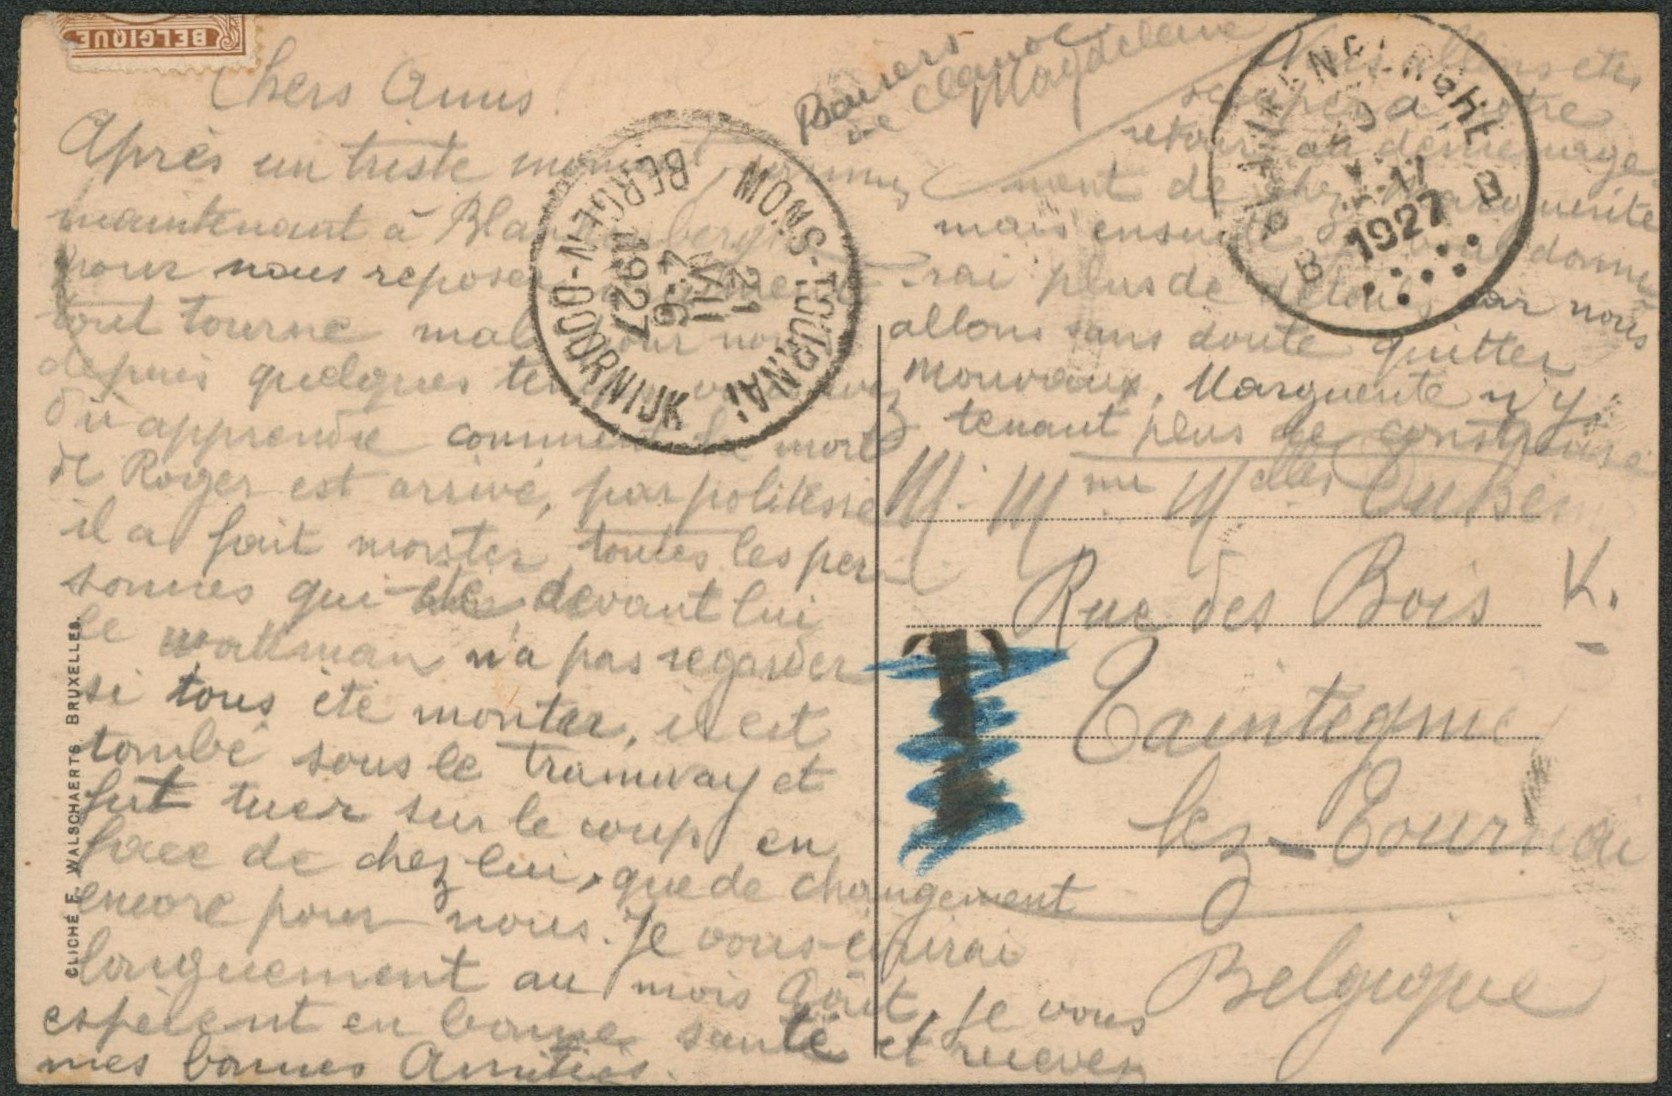 BELGIQUE
Chers Amis
Après un triste moment,
maintenant à Blankenberghe
pour nous reposer
tout tourne mal pour nous
depuis quelques temps vous avez
dû apprendre comment la mort
de Roger est arrivé, par politesse
il a fait monter toutes les per-
sonnes qui été devant lui
le wattman n'a pas regarder
si tous été monter, il est
tombé sous le tramway et
fut tuer sur le coup en
face de chez lui, que de changement
encore pour nous. Je vous écrirai
longuement au mois Août, je vous
espèrent en bonne santé et recevez
mes bonnes Amitiés.
Baisers
de
Magdeleine
Nous allons etre
à notre
retour au déménage-
ment de chez Marguerite
mais ensuite je vous donne-
rai plus de détails car nous
allons sans doute quitter
Mouvaux, Marguerite n'y
tenant plus de
M. Mme Melles
Rue des Bois
K.
Taintegnie
lez-Tournai
Belgique
T
MONS-TOURNAI
BERGEN-DOORNIJK
21
VII
4-6
1927
1927
B B
CLICHÉ F. WALSCHAERTS. BRUXELLES.